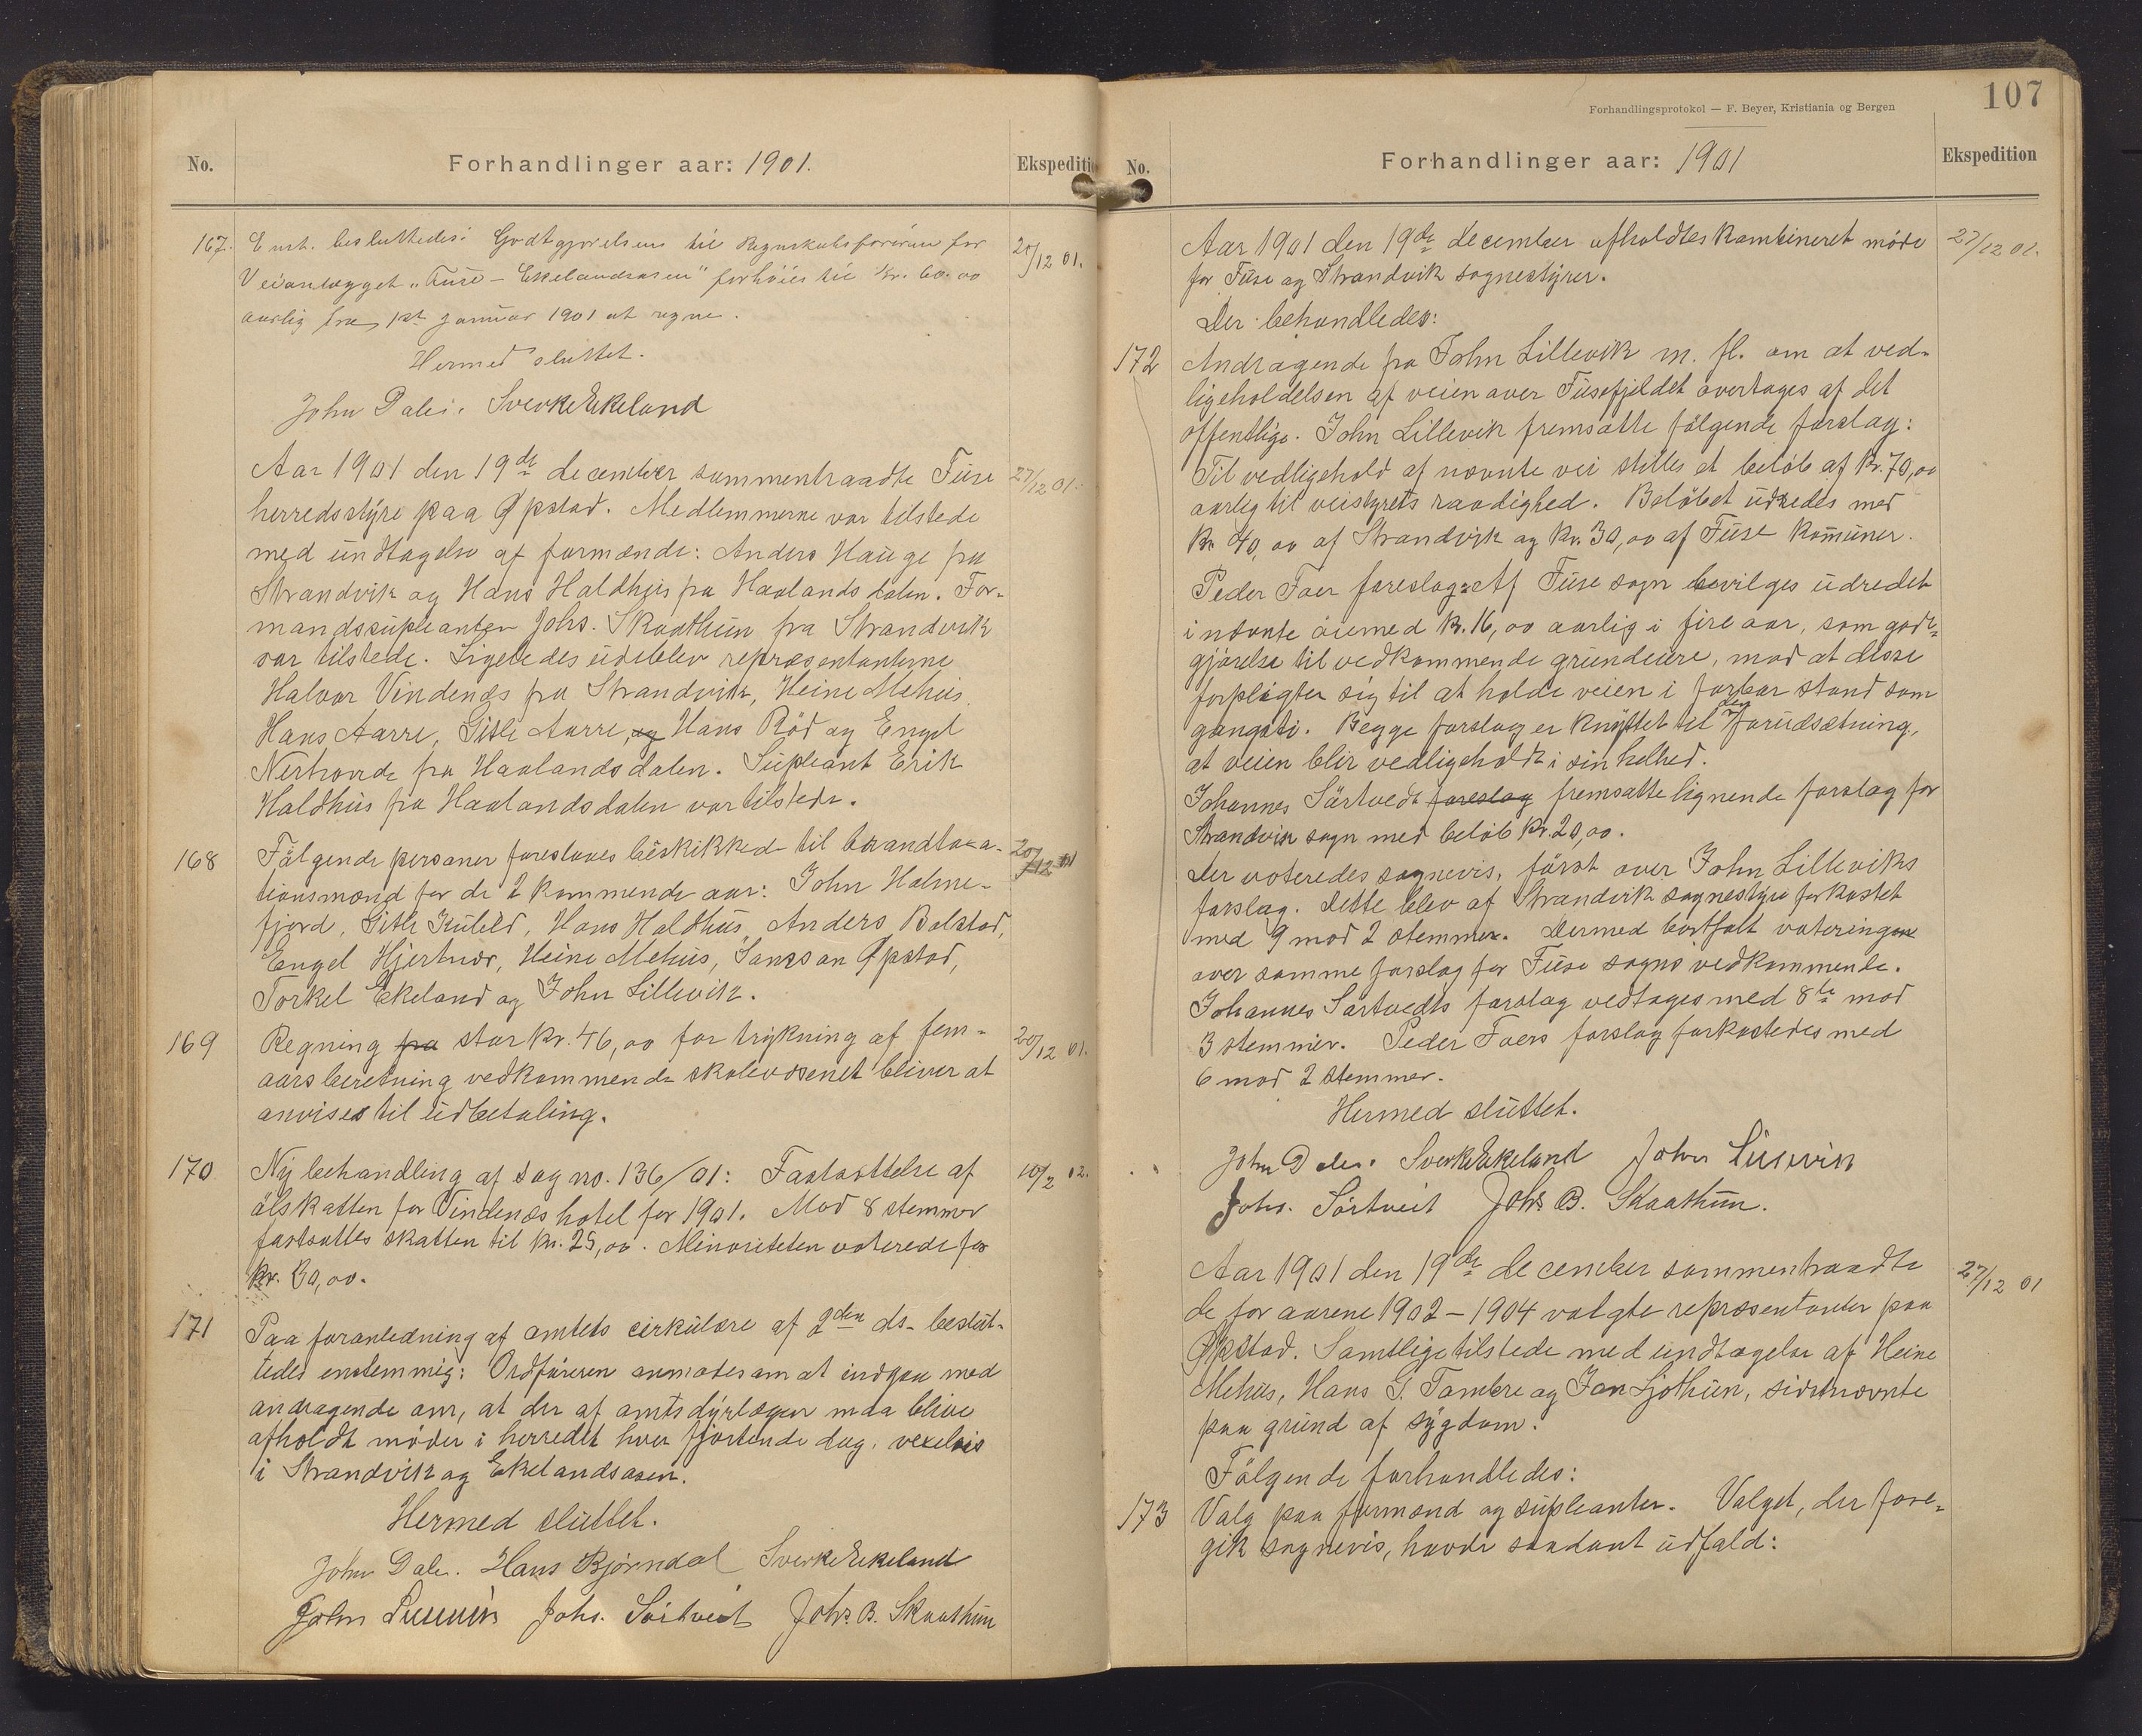 No.
Forhandlinger aar: 1901.
Ekspeditio
167.
Enst. besluttedes: Godtgjørelsen til Regnskabsføreren for
Veianlægget „Fuse – Ekelandsosen" forhöies til Kr. 60.00
aarlig fra 1st januar 1901 at regne.
20/12 01.
Hermed sluttet.
John Dale. Sverke Ekeland
Aar 1901 den 19de december sammentraadte Fuse
27/12 01.
herredsstyre paa Øpstad. Medlemmerne var tilstede
med undtagelse af formænd: Anders Hauge fra
Strandvik og Hans Haldhus fra Haalandsdalen. For-
mandssupleanten Johs. Skaathun fra Strandvik
var tilstede. Ligeledes udeblev repræsentanterne
Halvor Vindenæs fra Strandvik, Heine Mehus,
Hans Aarre, Sitle Aarre, og Hans Röd og Engel
Nertvorde fra Haalandsdalen. Supleant Erik
Haldhus fra Haalandsdalen var tilstede.
168
Fölgende personer foreslaaes beskikkede til brandtaxa-
20/12 01
tionsmænd for de 2 kommende aar: John Holme-
fjord, Sitle Kuleld, Hans Haldhus, Anders Bolstad,
Engel Hjertnæs, Heine Mehus, Samson Øpstad,
Torkel Ekeland og John Lillevik.
169
Regning fra stor kr. 46,00 for trykning af fem-
20/12 01.
aarsberetning vedkommende skolevæsenet bliver at
anvises til udbetaling.
170
Ny behandling af sag no. 136/01: Fastsættelse af
10/2 02.
ölskatten for Vindenæs hotel for 1901. Mod 8 stemmer
fastsattes skatten til kr. 25,00. Minoriteten voterede for
kr. 30,00.
171
Paa foranledning af amtets cirkulære af 2den ds. beslut-
tedes enstemmig: Ordföreren anmodes om at indgaa med
andragende om, at der af amtsdyrlægen maa blive
afholdt möder i herredet hver fjortende dag, vexelvis
i Strandvik og Ekelandsosen.
Hermed sluttet.
John Dale. Hans Bjørndal Sverke Ekeland
John Lillevik Johs. Sörtveit Johs. B. Skaathun
107
Forhandlingsprotokol — F. Beyer, Kristiania og Bergen
No.
Forhandlinger aar: 1901
Ekspedition
Aar 1901 den 19de december afholdtes kombineret möde
27/12 01.
for Fuse og Strandvik sognestyrer.
Der behandledes:
172
Andragende fra John Lillevik m. fl. om at ved-
ligeholdelsen af veien over Fusefjeldet overtages af det
offentlige. John Lillevik fremsatte fölgende forslag:
Til vedligehold af nævnte vei stilles et belöb af kr. 70,00
aarlig til veistyrets raadighed. Belöbet udredes med
kr. 40,00 af Strandvik og kr. 30,00 af Fuse kommuner.
Peder Foer foreslog: Af Fuse sogn bevilges udredet
i nævnte öiemed kr. 16,00 aarlig i fire aar, som godt-
gjörelse til vedkommende grundeiere, mod at disse
forpligter sig til at holde veien i farbar stand som
gangsti. Begge forslag er knyttet til den forudsætning,
at veien blir vedligeholdt i sin helhed.
Johannes Sörtvedt foreslog fremsatte lignende forslag for
Strandvik sogn med belöb kr. 20,00.
Der voteredes sognevis, först over John Lilleviks
forslag. Dette blev af Strandvik sognestyre forkastet
med 9 mod 2 stemmer. Dermed bortfalt voteringen
over samme forslag for Fuse sogns vedkommende.
Johannes Sörtvedts forslag vedtoges med 8te mod
3 stemmer. Peder Foers forslag forkastedes med
6 mod 2 stemmer.
Hermed sluttet.
John Dale. Sverke Ekeland John Lillevik
Johs. Sörtveit Johs. B. Skaathun.
Aar 1901 den 19de december sammentraadte
27/12 01
de for aarene 1902 – 1904 valgte repræsentanter paa
Øpstad. Samtlige tilstede med undtagelse af Heine
Mehus, Hans G. Tombre og Jon Ljothun, sidstnævnte
paa grund af sygdom.
Fölgende forhandledes:
173
Valg paa formænd og supleanter. Valget, der fore-
gik sognevis, havde saadant udfald: